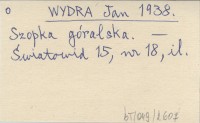 o WYDRA Jan 1938.
Szopka góralska. —
Światowid 15, nr 18, il.
bT/049/2607